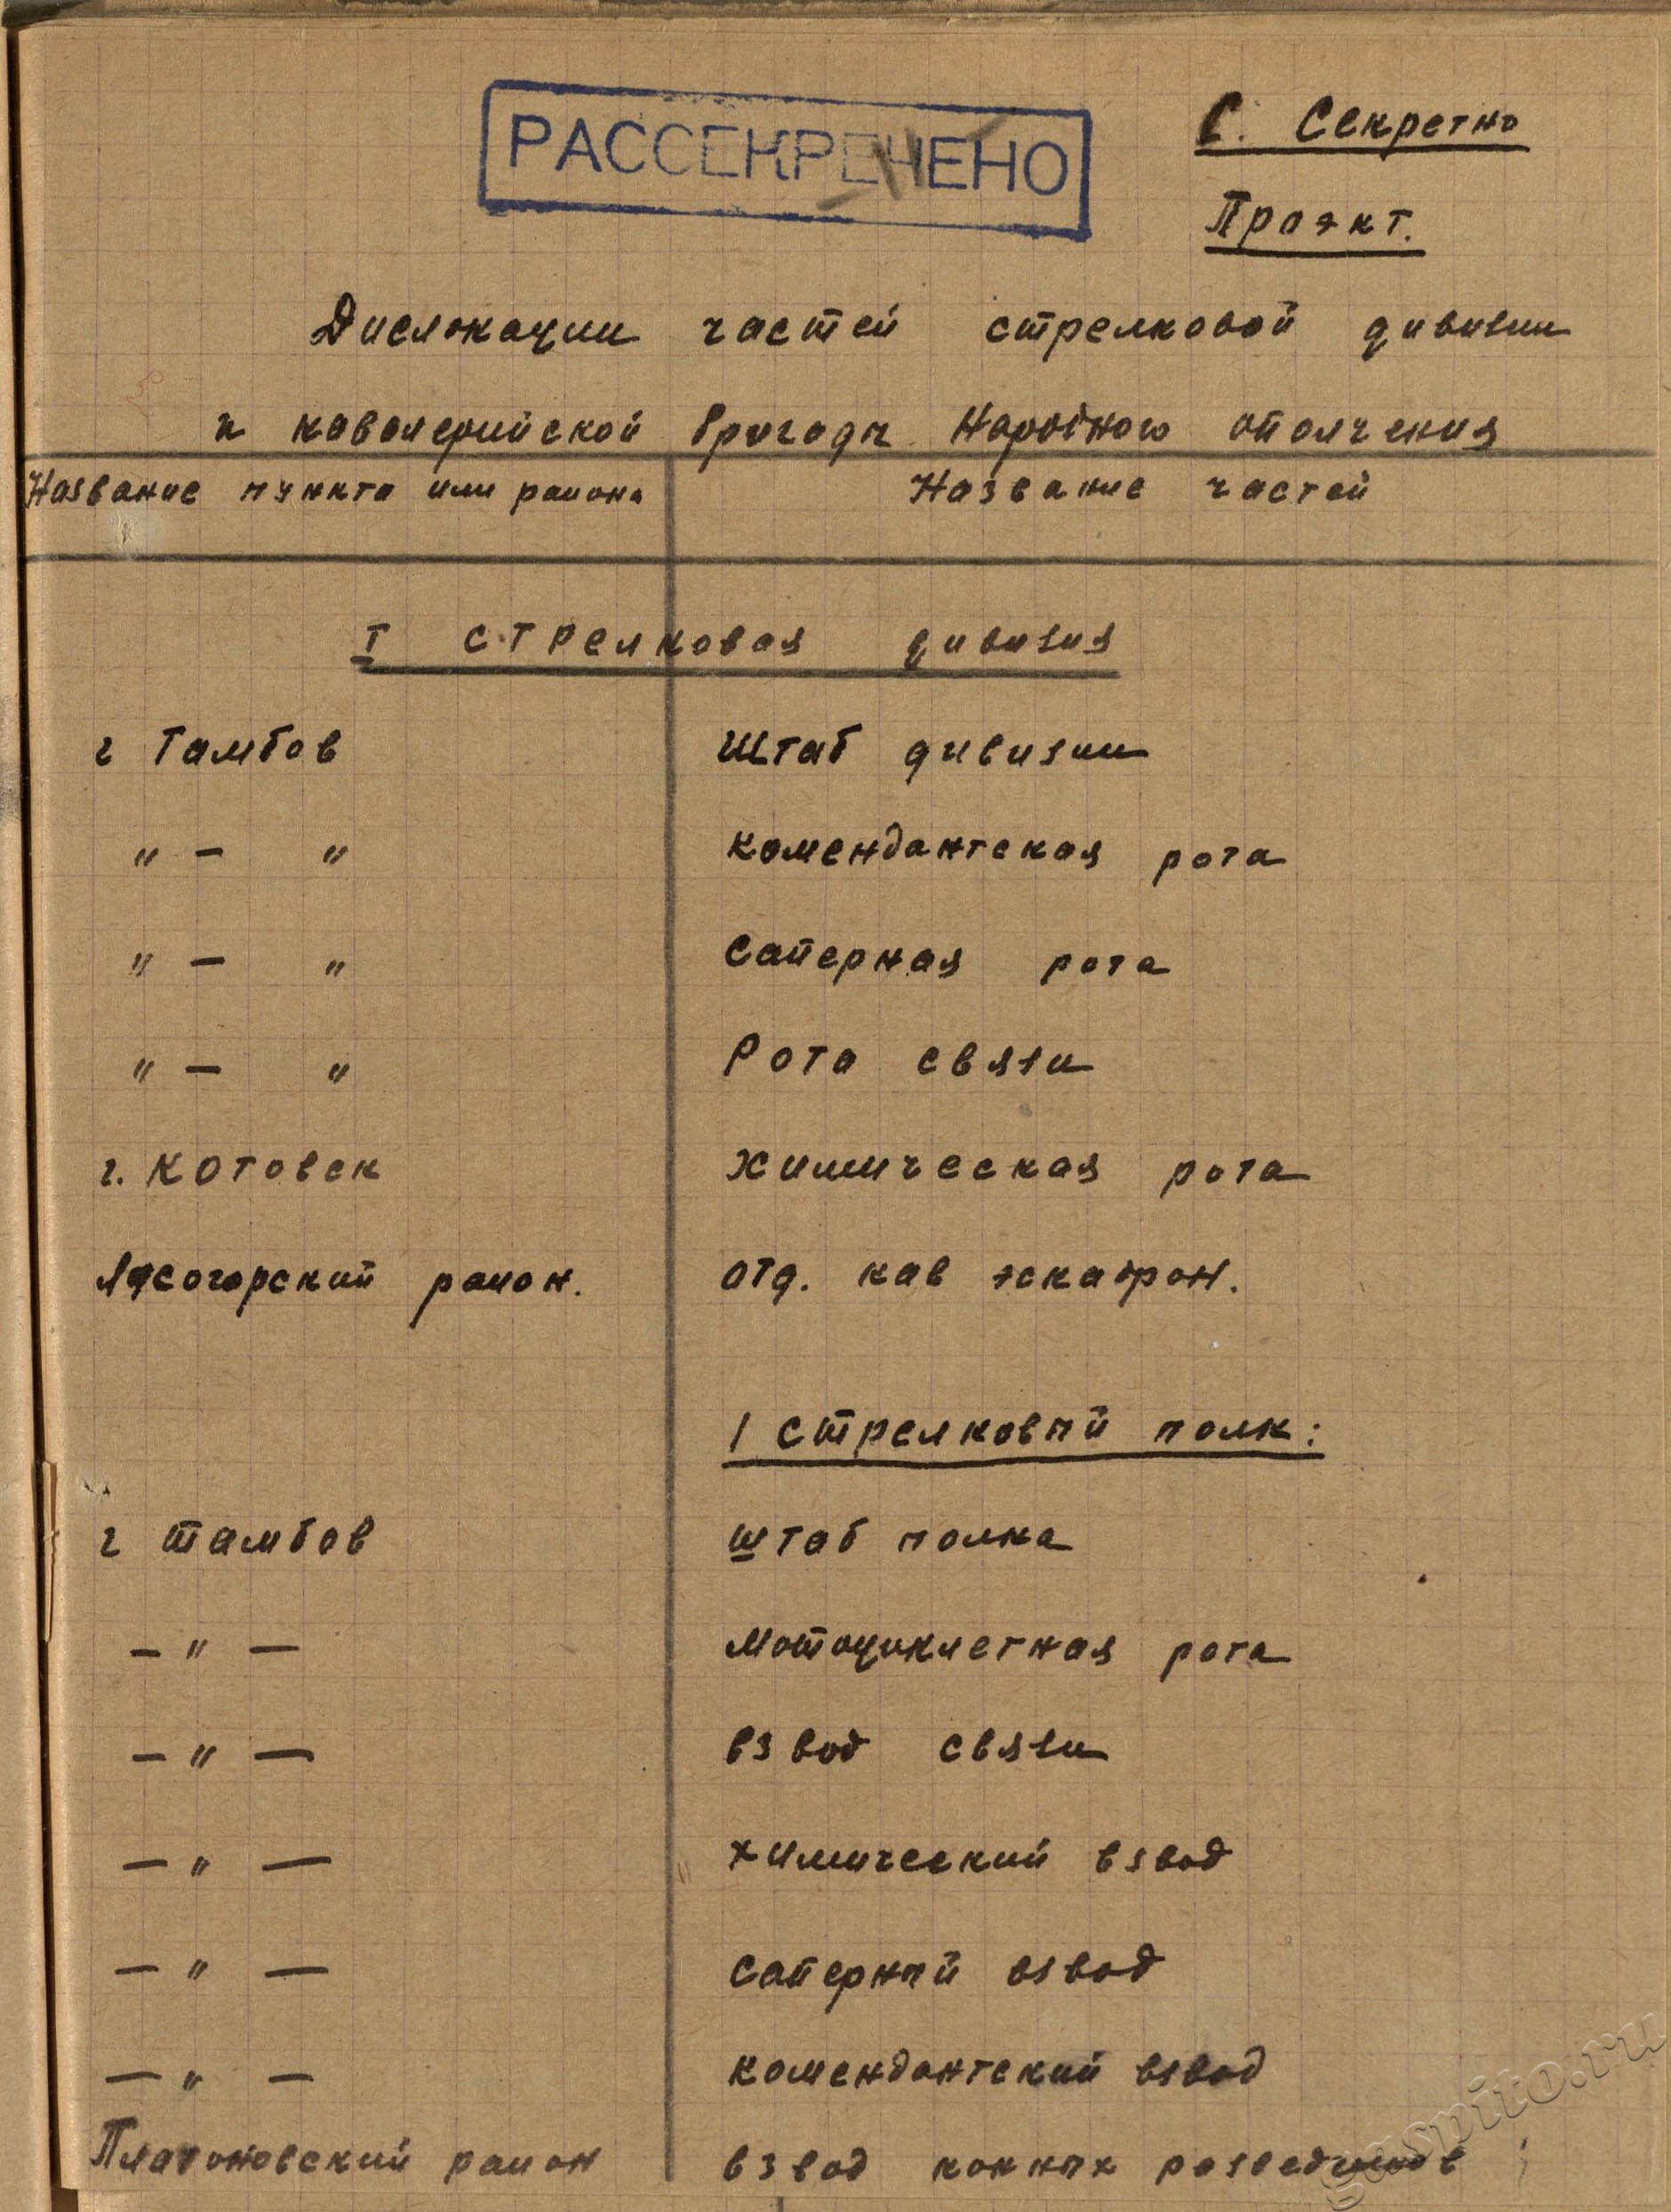 РАССЕКРЕЧЕНО
С. Секретно
Проэкт.
Дислокации частей стрелковой дивизии
и кавалерийской бригады Народного ополчения
Название пункта или района Название частей
I стрелковая дивизия
г Тамбов Штаб дивизии
" — " Комендантская рота
" — " Саперная рота
" — " Рота связи
г. Котовск Химическая рота
Лысогорский район. Отд. кав эскадрон.
1 стрелковый полк:
г Тамбов Штаб полка
— " — Мотоциклетная рота
— " — Взвод связи
— " — Химический взвод
— " — Саперный взвод
— " — Комендантский взвод
Платоновский район Взвод конных разведчиков
gaspito.ru